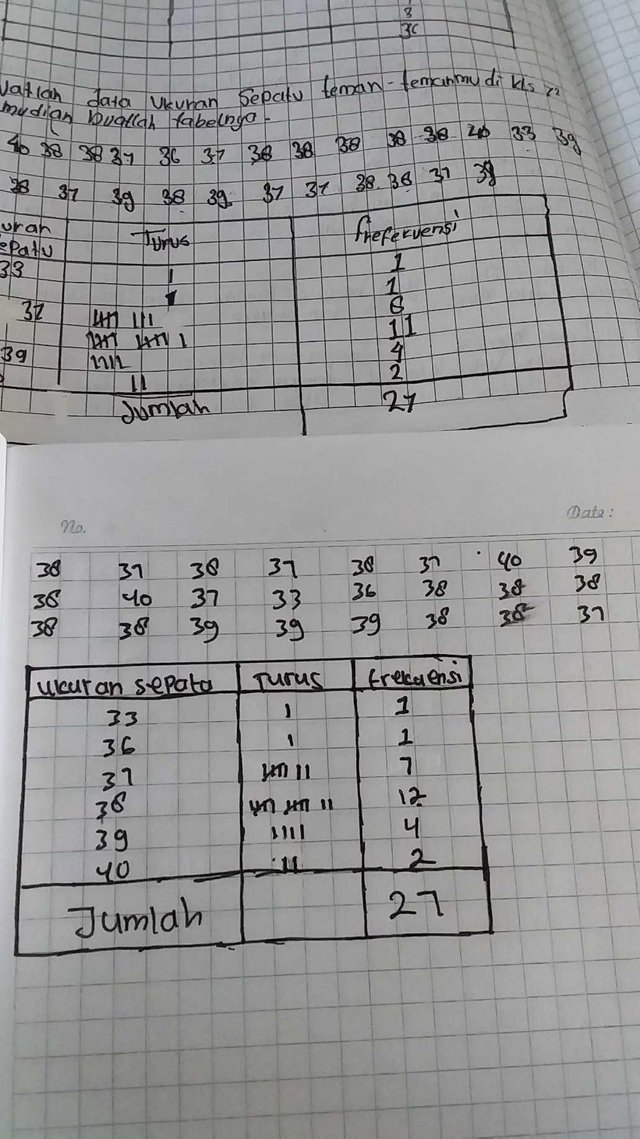 8
36
uatlah data Ukuran Sepatu teman-temanmu di kls
mudian buatlah tabelnya.
40 38 38 37 36 37 38 38 38 38 38 40 33 39
38 37 39 38 39 37 37 38 38 37 39
uran epatu Turus Frefekuensi
33 | 1
| 1
37 𝍸 ||| 8
𝍸 𝍸 | 11
39 |||| 4
|| 2
Jumlah 27
No. Date:
38 37 38 37 38 37 40 39
38 40 37 33 36 38 38 38
38 38 39 39 39 38 38 37
Ukuran sepatu Turus frekuensi
33 | 1
36 | 1
37 𝍸 || 7
38 𝍸 𝍸 || 12
39 |||| 4
40 || 2
Jumlah 27